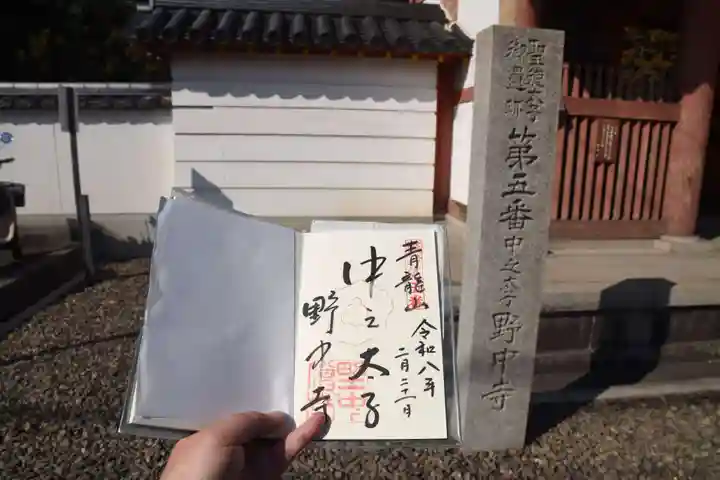 青龍山
令和八年
二月二十一日
中之太子
野中寺
聖徳太子
御遺跡
第五番中之太子野中寺